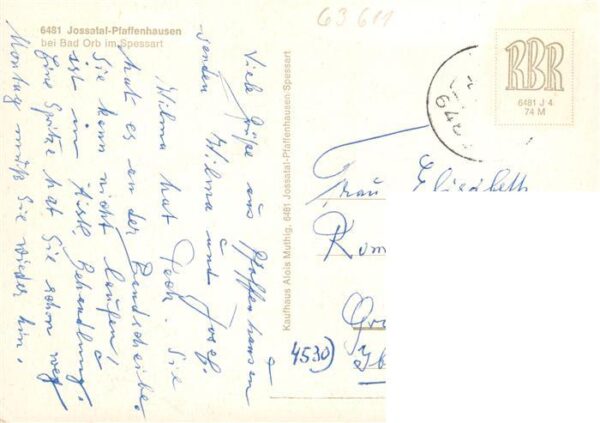 6481 Jossatal-Pfaffenhausen
bei Bad Orb im Spessart
63611
Viele Grüße aus Pfaffenhausen
senden Wilma und Josef.
Wilma hat Pech. Sie
hat es an der Bandscheibe.
Sie kann nicht laufen,
ist in ärztl. Behandlung.
Eine Spritze hat Sie schon weg
Montag muß Sie wieder hin.
Kaufhaus Alois Muthig, 6481 Jossatal-Pfaffenhausen/Spessart
RBR
6481 J 4
74 M
Frau Elisabeth
4530)